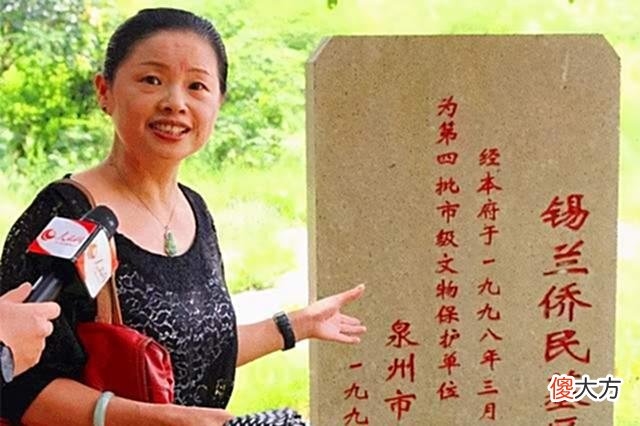 锡兰侨民墓
经本府于一九九八年三月
为第四批市级文物保护单位
泉州市
一九九
人民网
傻大方